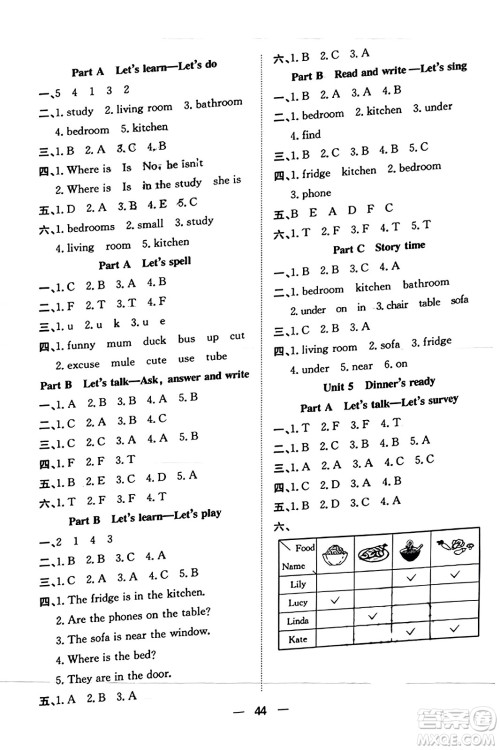 Part A Let's learn—Let's do
一、5 4 1 3 2
二、1. study 2. living room 3. bathroom
4. bedroom 5. kitchen
三、1. B 2. A 3. C 4. B 5. A
四、1. Where is Is No, he isn't
2. Where is Is in the study she is
五、1. D 2. A 3. B 4. E 5. C
六、1. bedrooms 2. small 3. study
4. living room 5. kitchen
Part A Let's spell
一、1. C 2. B 3. A 4. C 5. B
二、1. F 2. F 3. T 4. T
三、1. u 2. u 3. k 4. u 5. u
四、1. funny mum duck bus up cut
2. excuse mule cute use tube
Part B Let's talk—Ask, answer and write
一、1. A 2. B 3. B 4. A 5. B
二、1. B 2. C 3. B 4. A 5. C
三、1. B 2. A 3. B 4. A 5. B
四、1. F 2. F 3. T
五、1. B 2. A 3. D 4. C
六、1. T 2. F 3. T 4. F 5. F
Part B Let's learn—Let's play
一、2 1 4 3
二、1. B 2. A 3. D 4. C
三、1. B 2. A 3. A 4. A 5. B
四、1. The fridge is in the kitchen.
2. Are the phones on the table?
3. The sofa is near the window.
4. Where is the bed?
5. They are in the door.
五、1. C 2. B 3. D 4. A
六、1. B 2. C 3. A
Part B Read and write—Let's sing
一、1. B 2. C 3. B 4. A 5. C
二、1. bedroom 2. kitchen 3. under
4. find
三、1. A 2. C 3. B 4. B 5. C
四、1. fridge kitchen 2. bedroom
3. phone
五、B E A D F C
六、1. T 2. F 3. F 4. T 5. F
Part C Story time
一、1. bedroom kitchen bathroom
2. under on in 3. chair table sofa
二、1. C 2. A 3. B 4. B 5. A
三、1. living room 2. sofa 3. fridge
4. under 5. near 6. on
Unit 5 Dinner's ready
Part A Let's talk—Let's survey
一、1. T 2. F 3. F 4. T
二、1. B 2. A 3. B 4. A 5. B
三、1. C 2. A 3. C 4. C 5. B
四、1. C 2. B 3. A 4. E 5. D
五、1. D 2. C 3. A 4. B
六、
Food
Name
Lily ✓ ✓
Lucy ✓
Linda ✓
Kate ✓ ✓
44
答案圈
MXQE.COM